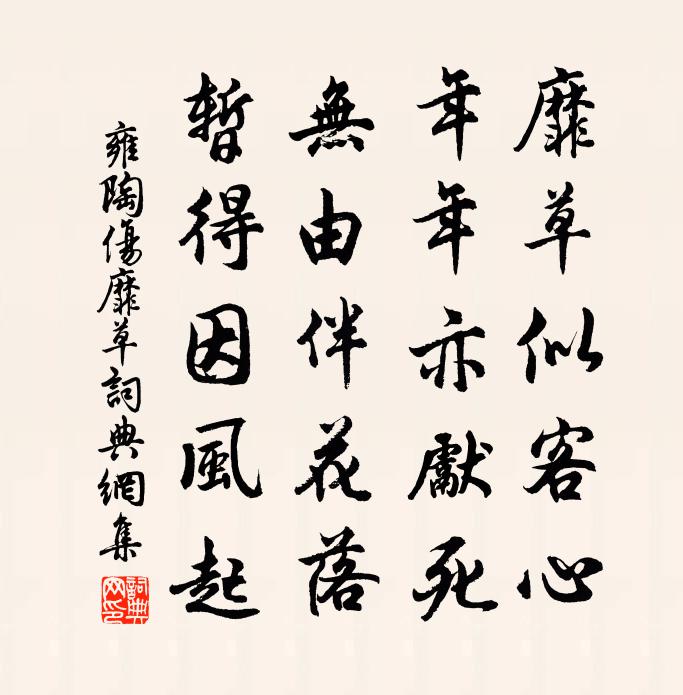 靡草似客心
年年亦獻死
無由伴花落
暫得因風起
雍陶傷靡草詞典網集
詞典網印